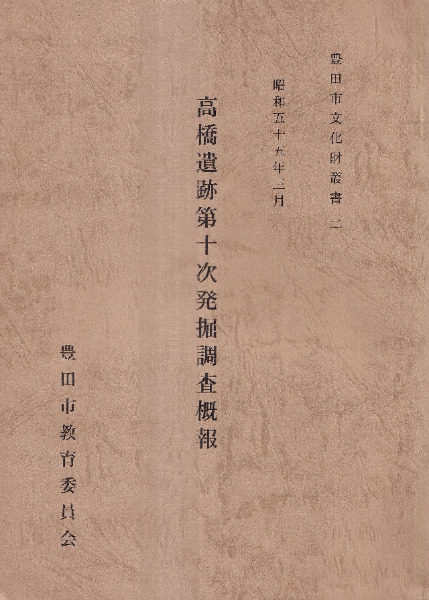 豊田市文化財叢書 二
昭和五十五年三月
高橋遺跡第十次発掘調査概報
豊田市教育委員会